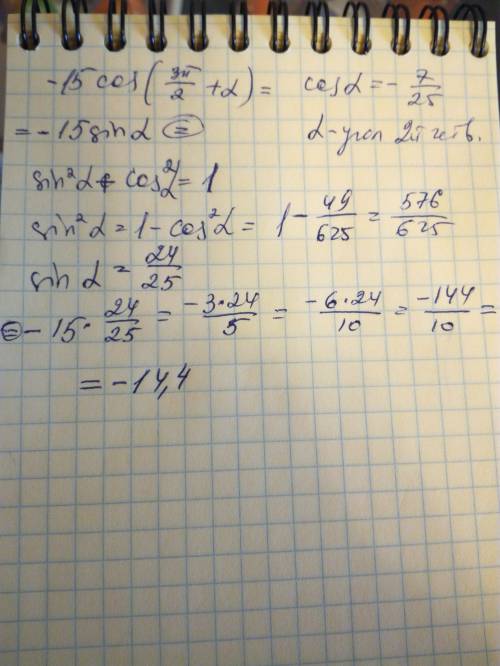 -15 cos(3π/2 + α) = cos α = -7/25
= -15 sin α = α - угол 2й четв.
sin²α + cos²α = 1
sin²α = 1 - cos²α = 1 - 49/625 = 576/625
sin α = 24/25
= -15 · 24/25 = -3·24/5 = -6·24/10 = -144/10 =
= -14,4